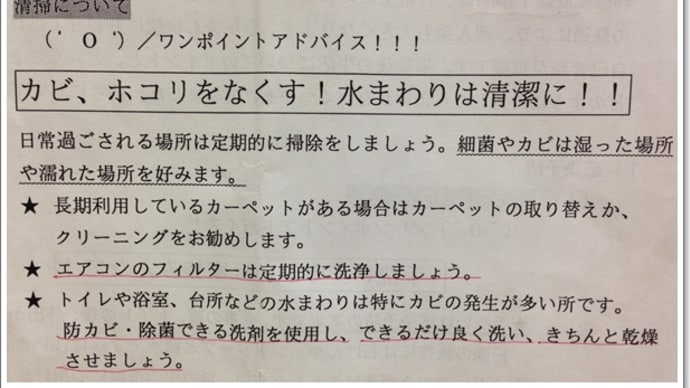 清掃について
(‘ O ‘)／ワンポイントアドバイス！！！
カビ、ホコリをなくす！水まわりは清潔に！！
日常過ごされる場所は定期的に掃除をしましょう。細菌やカビは湿った場所
や濡れた場所を好みます。
★ 長期利用しているカーペットがある場合はカーペットの取り替えか、
クリーニングをお勧めします。
★ エアコンのフィルターは定期的に洗浄しましょう。
★ トイレや浴室、台所などの水まわりは特にカビの発生が多い所です。
防カビ・除菌できる洗剤を使用し、できるだけ良く洗い、きちんと乾燥
させましょう。